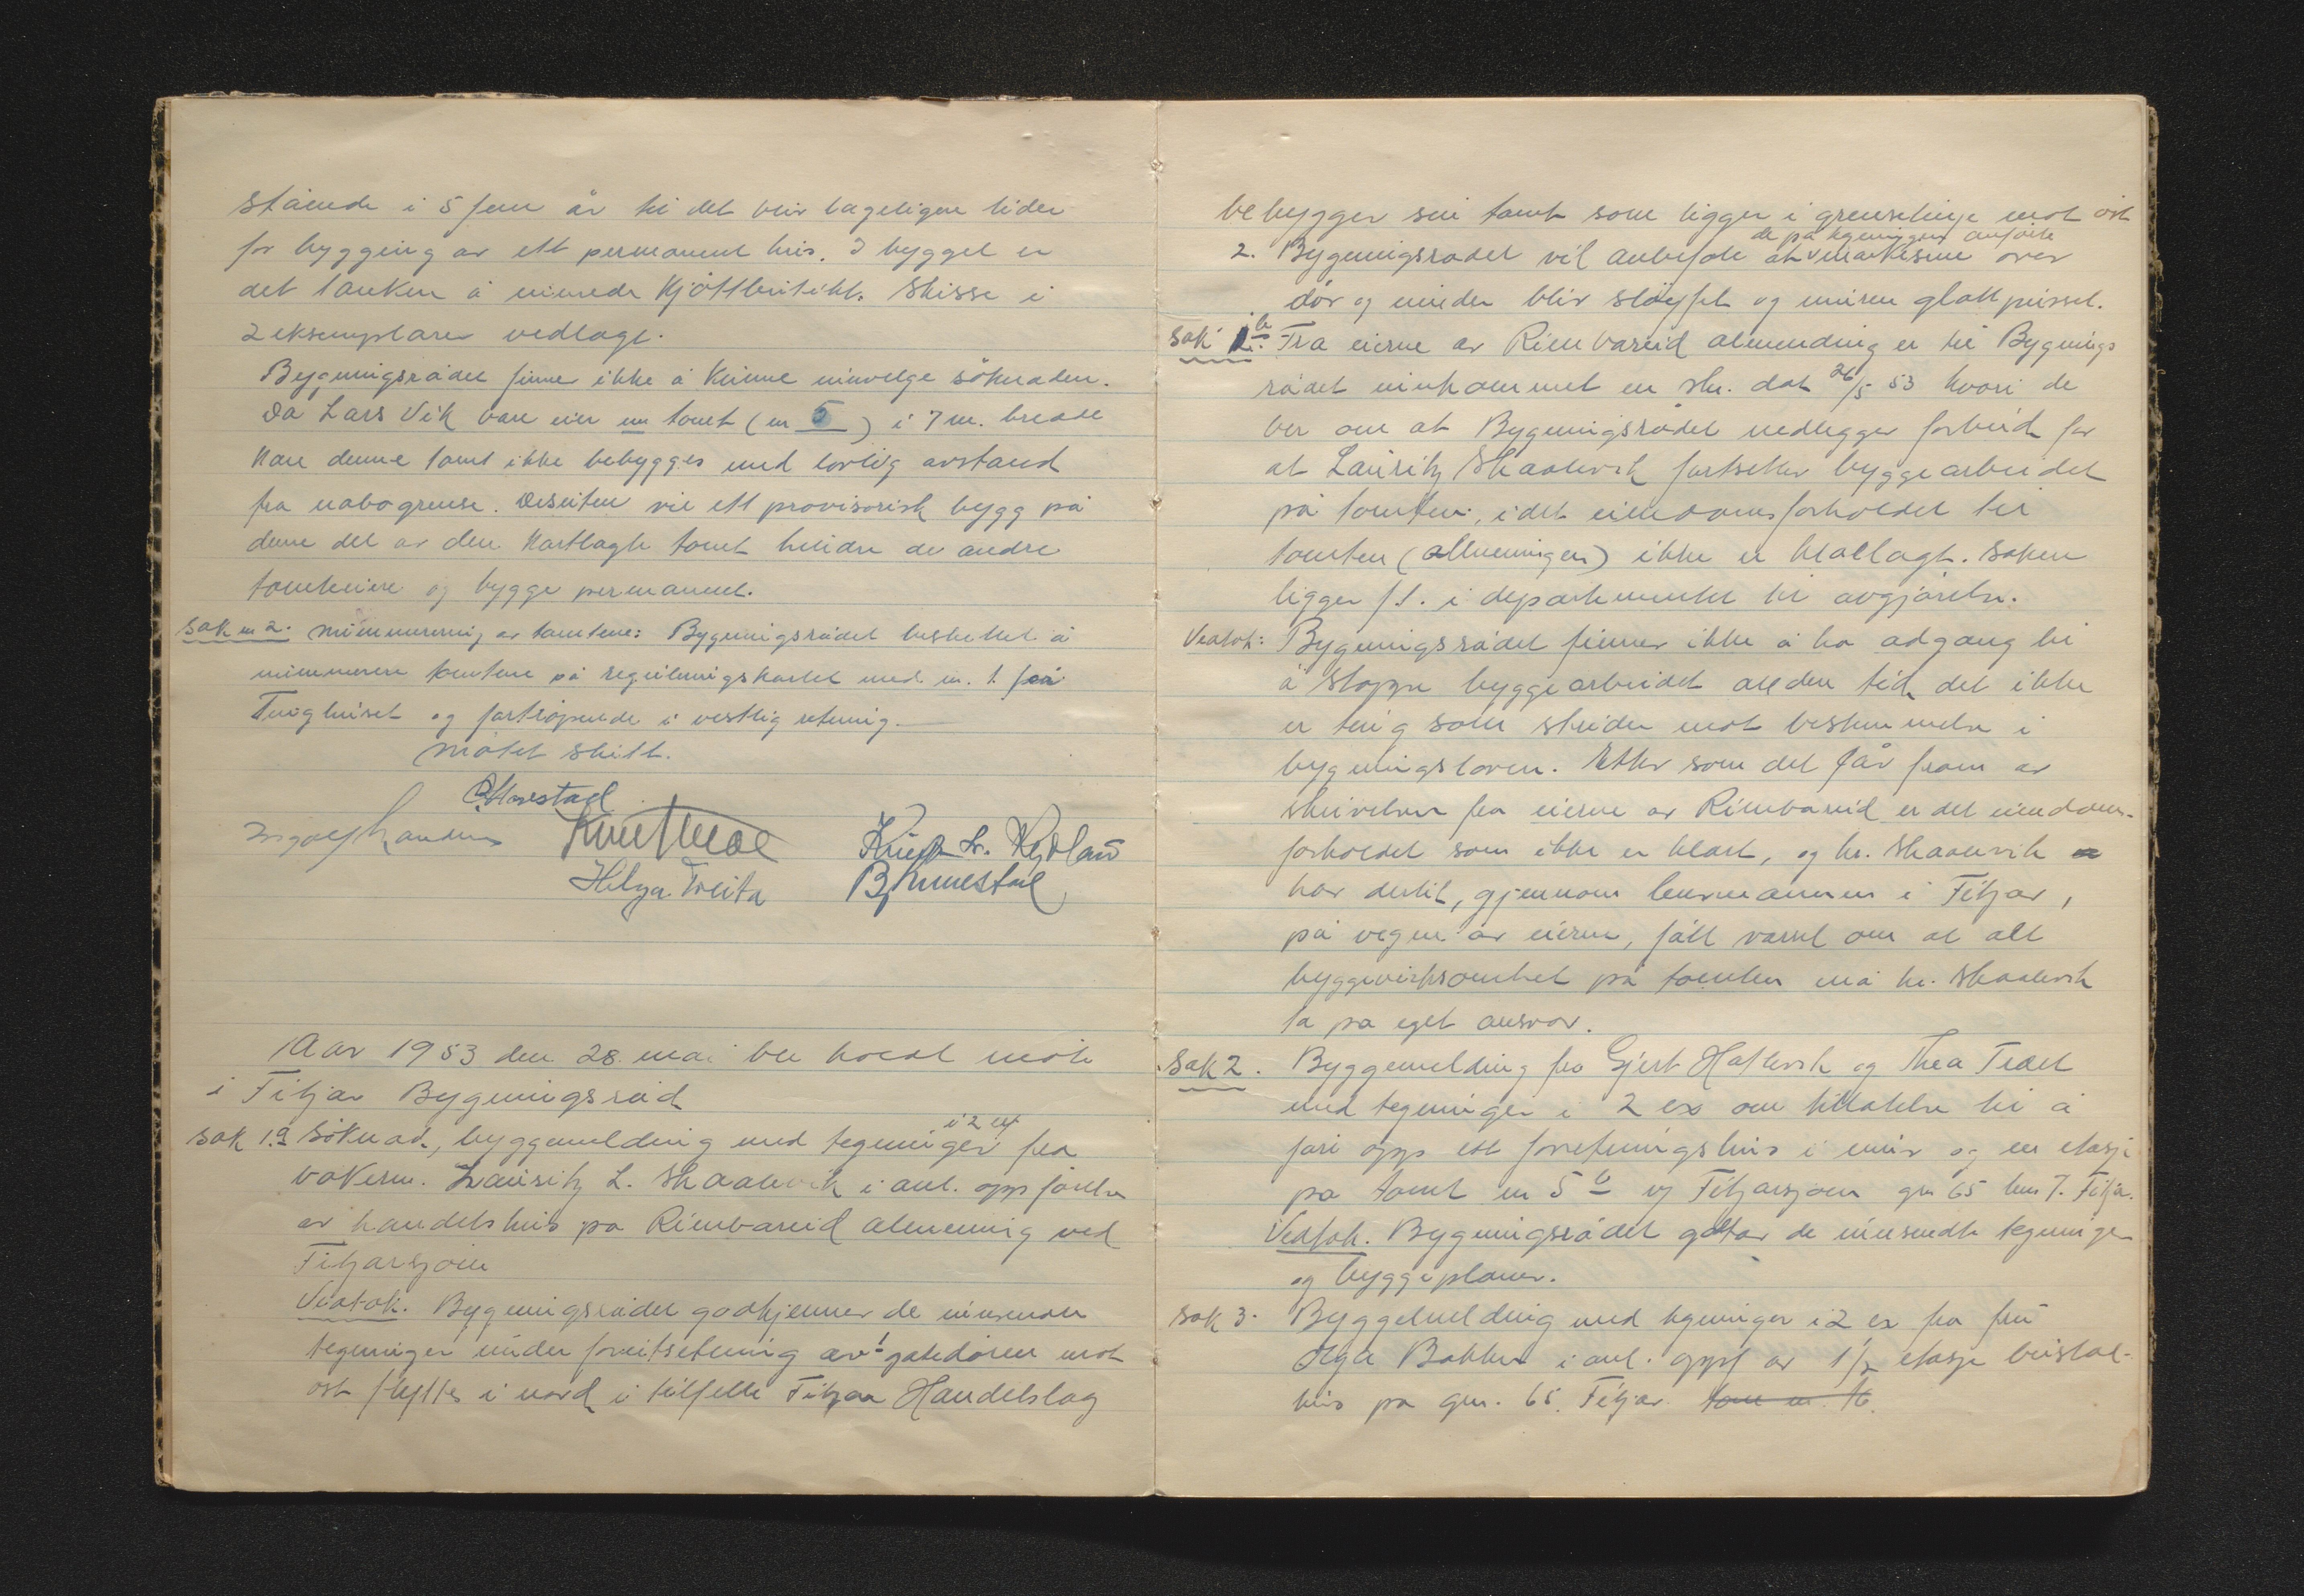 stående i 5 fem år til det blir lageligere tider
for bygging av ett permanent hus. I bygget er
det tanken å innrede Kjøttbutikk. Skisse i
2 eksemplarer vedlagt.
Bygningsrådet finner ikke å kunne innvelge söknaden.
Da Lars Vik bare eier en tomt (nr 5) i 7 m. bredde
kan denne tomt ikke bebygges med lovlig avstand
fra nabogrense. Desuten vil ett provisorisk bygg på
denne del av den kartlagte tomt hindre de andre
tomteeiere og bygge permanent.
Sak nr 2. Nummerering av tomtene: Bygningsrådet besluttet å
nummerere tomtene på reguleringskartet med nr. 1 frå
Tinghuset og fortlöpende i vestlig retning.
Mötet slutt.
Ingolf Knut Moe
Helga Tveita
Aar 1953 den 28. mai ble holdt möte
i Fitjar Bygningsråd
Sak 1.a Söknad, byggemelding med tegninger i 2 ex fra
bakerm. Lauritz L. Skaalevik i anl. oppförelse
av handelshus på Rimbareid almenning ved
Fitjarsjöen
Vedtak. Bygningsrådet godkjenner de innsendte
tegninger under forutsetning av at gatedören mot
öst flyttes i nord i tilfelle Fitjar Handelslag
bebygger sin tomt som ligger i grenselinje mot öst
2. Bygningsrådet vil anbefale at de på tegningen anförte markisene over
dör og vinduer blir slöyfet og muren glatt pusset.
Sak 1 b. Fra eierne av Rimbareid almending er til Bygnings
rådet innkommet en skr. dat 26/5 53 hvori de
ber om at Bygningsrådet nedlegger forbud for
at Lauritz Skaalevik fortsetter byggearbeidet
på tomten, idet eiendomsforholdet til
tomten (allmenningen) ikke er klarlagt. Saken
ligger f.t. i departementet til avgjörelse.
Vedtak: Bygningsrådet finner ikke å ha adgang til
å stoppe byggearbeidet all den tid det ikke
er ting som strider mot bestemmelse i
bygningsloven. Etter som det går fram av
skrivelsen fra eierne av Rimbareid er det eiendoms-
forholdet som ikke er klart, og hr. Skaalevik
har dertil, gjennom lensmannen i Fitjar,
på vegne av eierne, fått varsel om at all
byggevirksomhet på tomten må hr. Skaalevik
ta på eget ansvar.
Sak 2. Byggemelding fra Gjert Hatlevik og Thea Træet
med tegninger i 2 ex om tillatelse til å
föri opp ett forretningshus i mur og en etasje
på tomt nr 5 b v/ Fitjarsjöen gnr 65 bnr 7. Fitjar.
Vedtak. Bygningsrådet godtar de innsendte tegninger
og byggeplaner.
Sak 3. Byggemelding med tegninger i 2 ex fra fru
Olga Bakken i anl. oppf av 1 1/2 etasje bustad-
hus på gnr. 65. Fitjar.